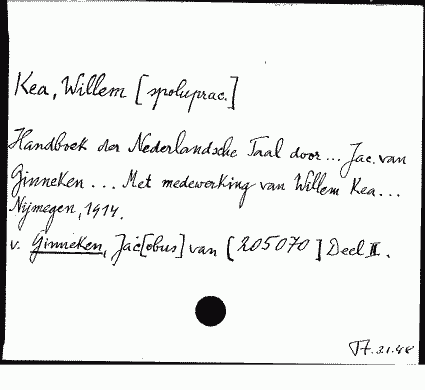 Kea, Willem [spoluprac.]
Handboek der Nederlandsche Taal door... Jac. van
Ginneken... Met medewerking van Willem Kea...
Nijmegen, 1914.
v. Ginneken, Jac[obus] van [205070] Deel II.
31.48